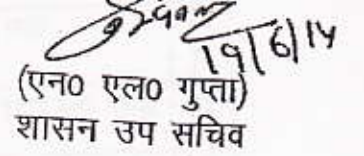 19/6/14
(एन0 एल0 गुप्ता)
शासन उप सचिव